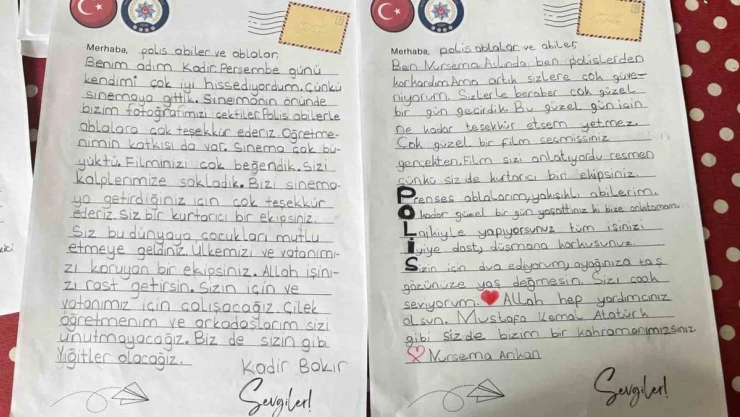 Merhaba, polis abiler ve ablalar,
Benim adım Kadir. Perşembe günü
kendimi çok iyi hissediyordum. Çünkü
sinemaya gittik. Sinemanın önünde
bizim fotoğrafımızı çektiler. Polis abilerle
ablalara çok teşekkür ederiz. Öğretme-
nimin katkısı da var. Sinema çok bü-
yüktü. Filminizi çok beğendik. Sizi
kalplerimize sakladık. Bizi sinema-
ya getirdiğiniz için çok teşekkür
ederiz. Siz bir kurtarıcı bir ekipsiniz.
Siz bu dünyaya çocukları mutlu
etmeye geldiniz. Ülkemizi ve vatanımı-
zı koruyan bir ekipsiniz. Allah işini-
zi rast getirsin. Sizin için ve
vatanımız için çalışacağız. Çilek
öğretmenim ve arkadaşlarım sizi
unutmayacağız. Biz de sizin gibi
yiğitler olacağız.
Kadir Bakır
Sevgiler!
Merhaba, polis ablalar ve abiler,
Ben Nursema Aslında ben polislerden
korkardım Ama artık sizlere çok güve-
niyorum. Sizlerle beraber çok güzel
bir gün geçirdik. Bu güzel gün için
ne kadar teşekkür etsem yetmez.
Çok güzel bir film seçmişsiniz
gerçekten. Film sizi anlatıyordu resmen
çünkü siz de kurtarıcı bir ekipsiniz.
Prenses ablalarım, yakışıklı abilerim
O kadar güzel bir gün yaşattınız ki bize anlatamam.
Layıkıyle yapıyorsunuz tüm işinizi
İyiye dost, düşmana korkusunuz.
Sizin için dua ediyorum, ayağınıza taş
gözünüze yaş değmesin. Sizi çook
seviyorum. Allah hep yardımcınız
olsun. Mustafa Kemal Atatürk
gibi siz de bizim bir kahramanımızsınız.
Nursema Arıkan
Sevgiler!